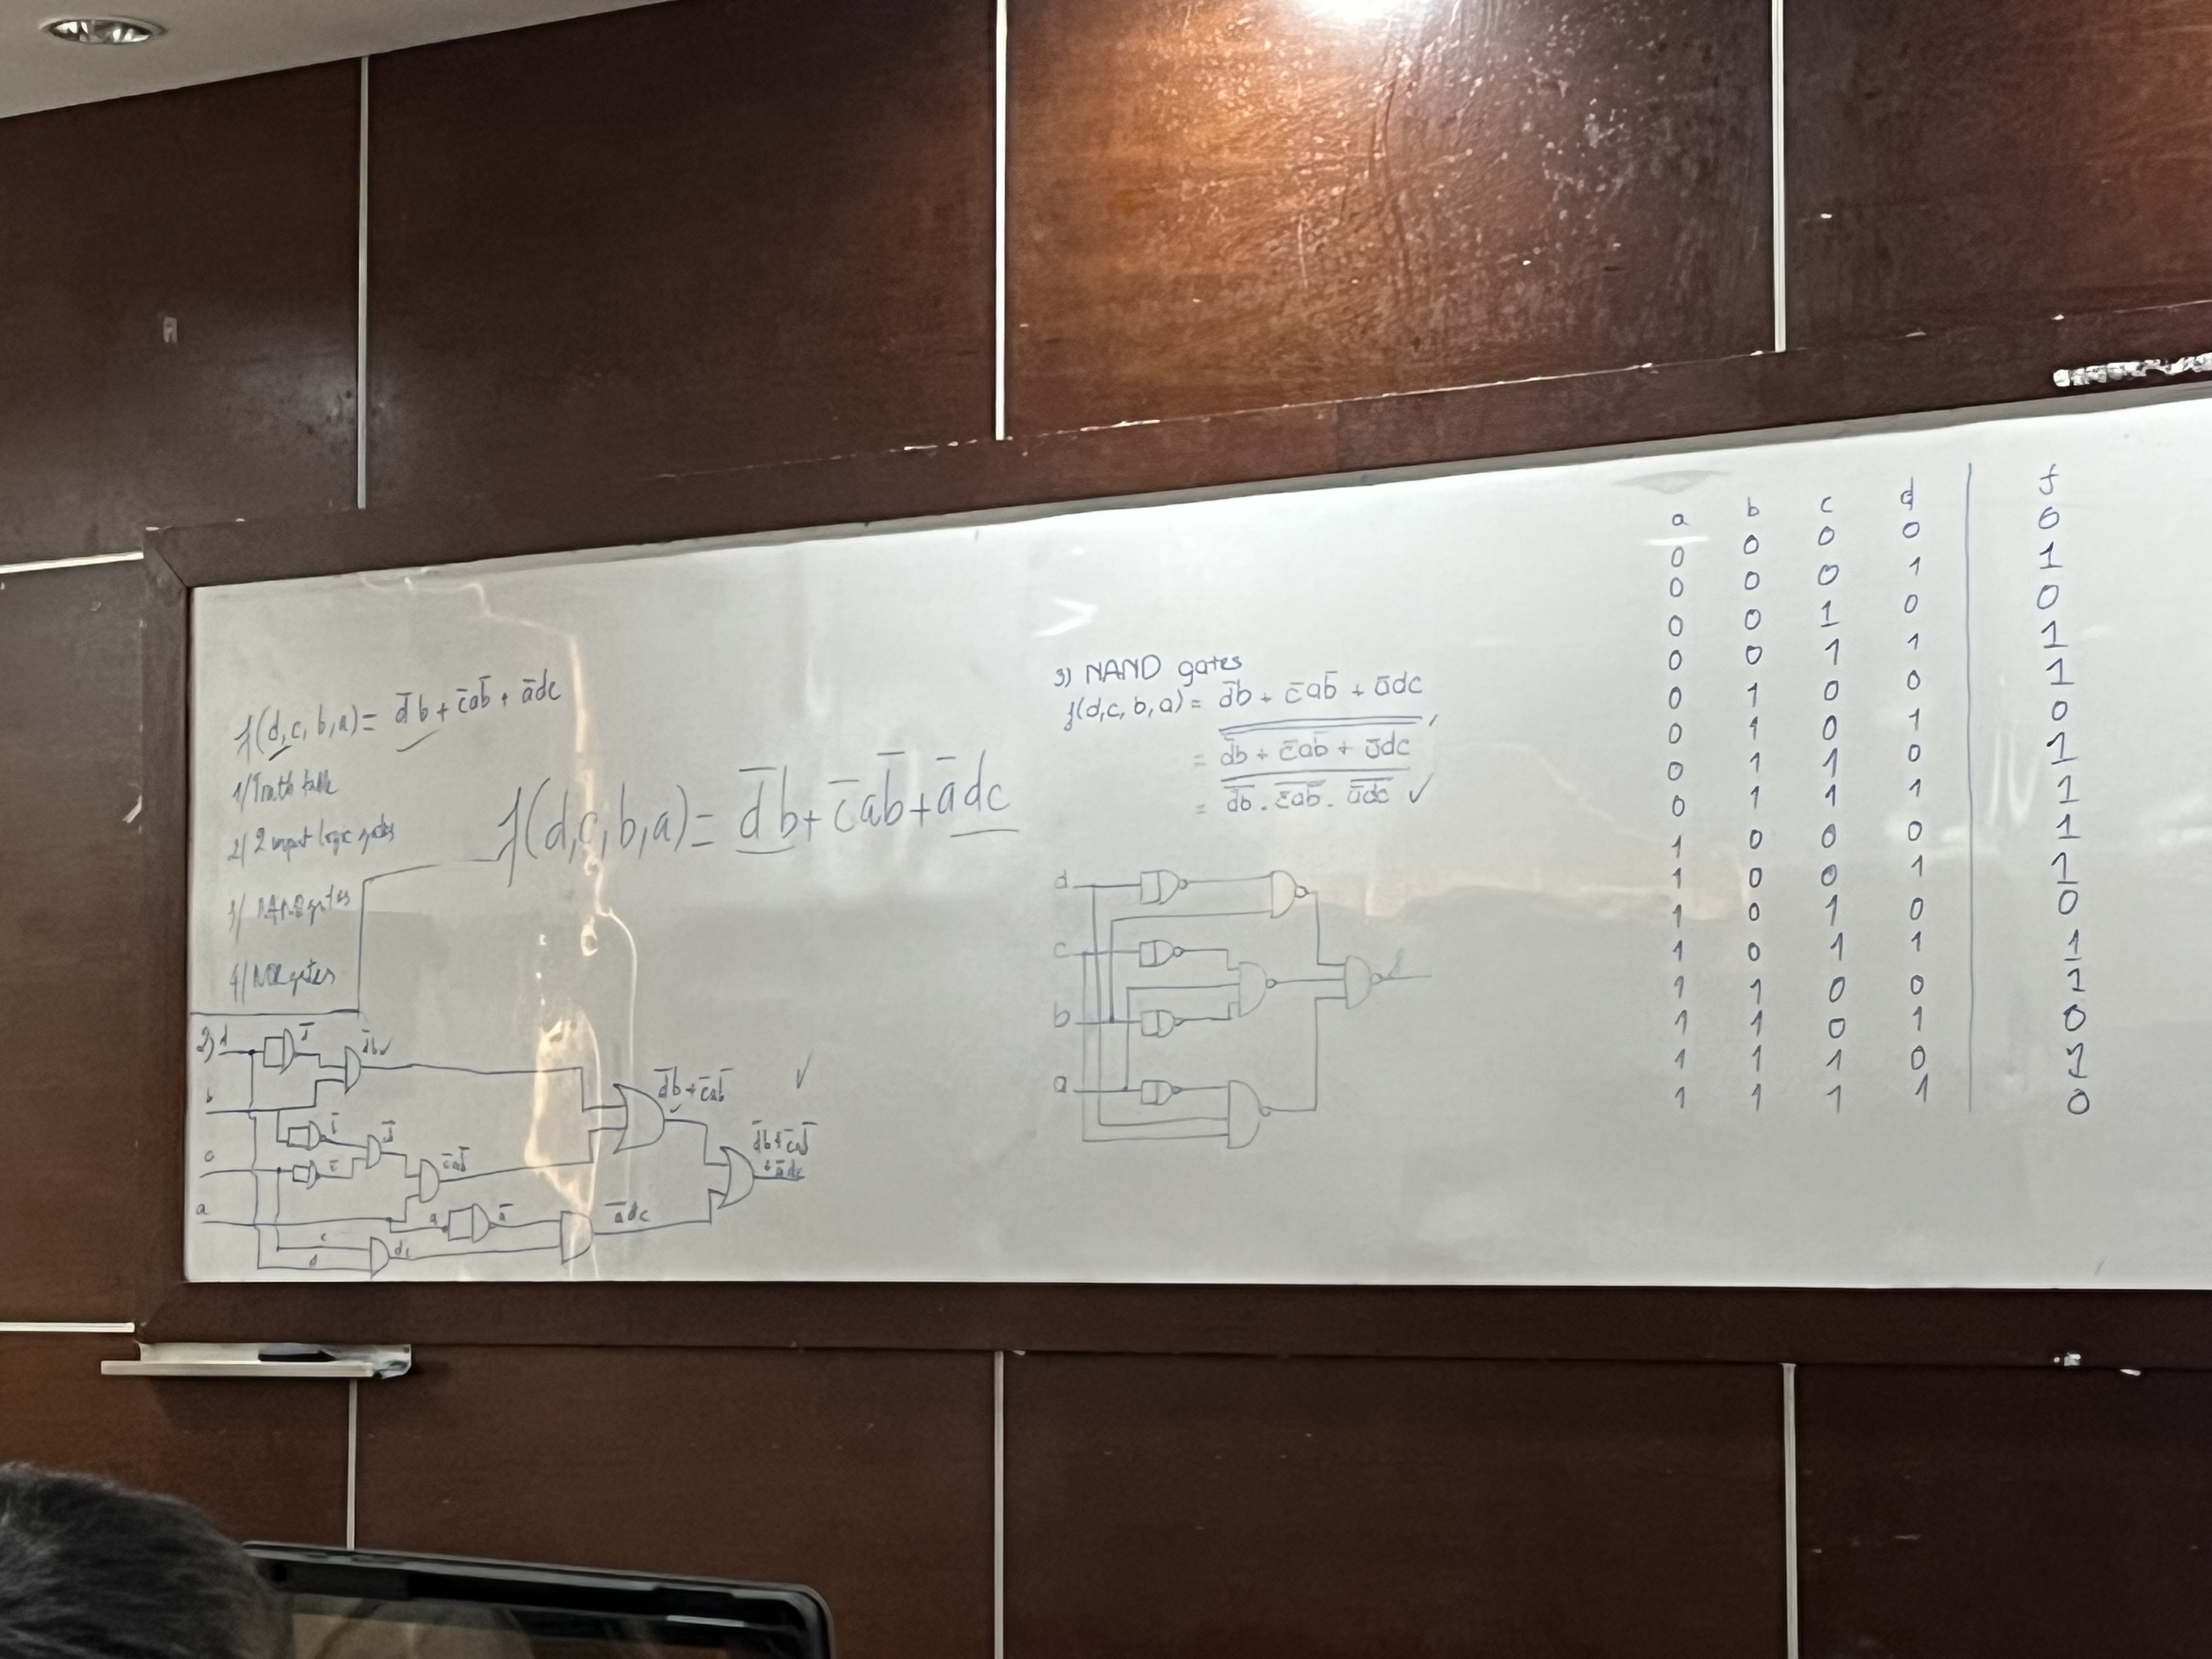 f(d,c, b,a) = d̅b + c̅ab̅ + a̅dc
1/ Truth table
2/ 2 input logic gates
3/ NAND gates
4/ NOR gates
f(d,c,b,a) = d̅b + c̅ab̅ + a̅dc
2) d
b
c
a
d̅
d̅b ✓
c̅
c̅ab̅
a
a̅
c
d
a̅dc
d̅b + c̅ab̅
✓
d̅b + c̅ab̅
+ a̅dc
3) NAND gates
f(d,c, b,a) = d̅b + c̅ab̅ + a̅dc
= \overline{\overline{d̅b + c̅ab̅ + a̅dc}}
= \overline{\overline{d̅b} . \overline{c̅ab̅} . \overline{a̅dc}} ✓
d
c
b
a
a b c d f
0 0 0 0 0
0 0 0 1 1
0 0 1 0 0
0 0 1 1 1
0 1 0 0 1
0 1 0 1 0
0 1 1 0 1
0 1 1 1 1
1 0 0 0 1
1 0 0 1 1
1 0 1 0 0
1 0 1 1 1
1 1 0 0 1
1 1 0 1 0
1 1 1 0 1
1 1 1 1 0